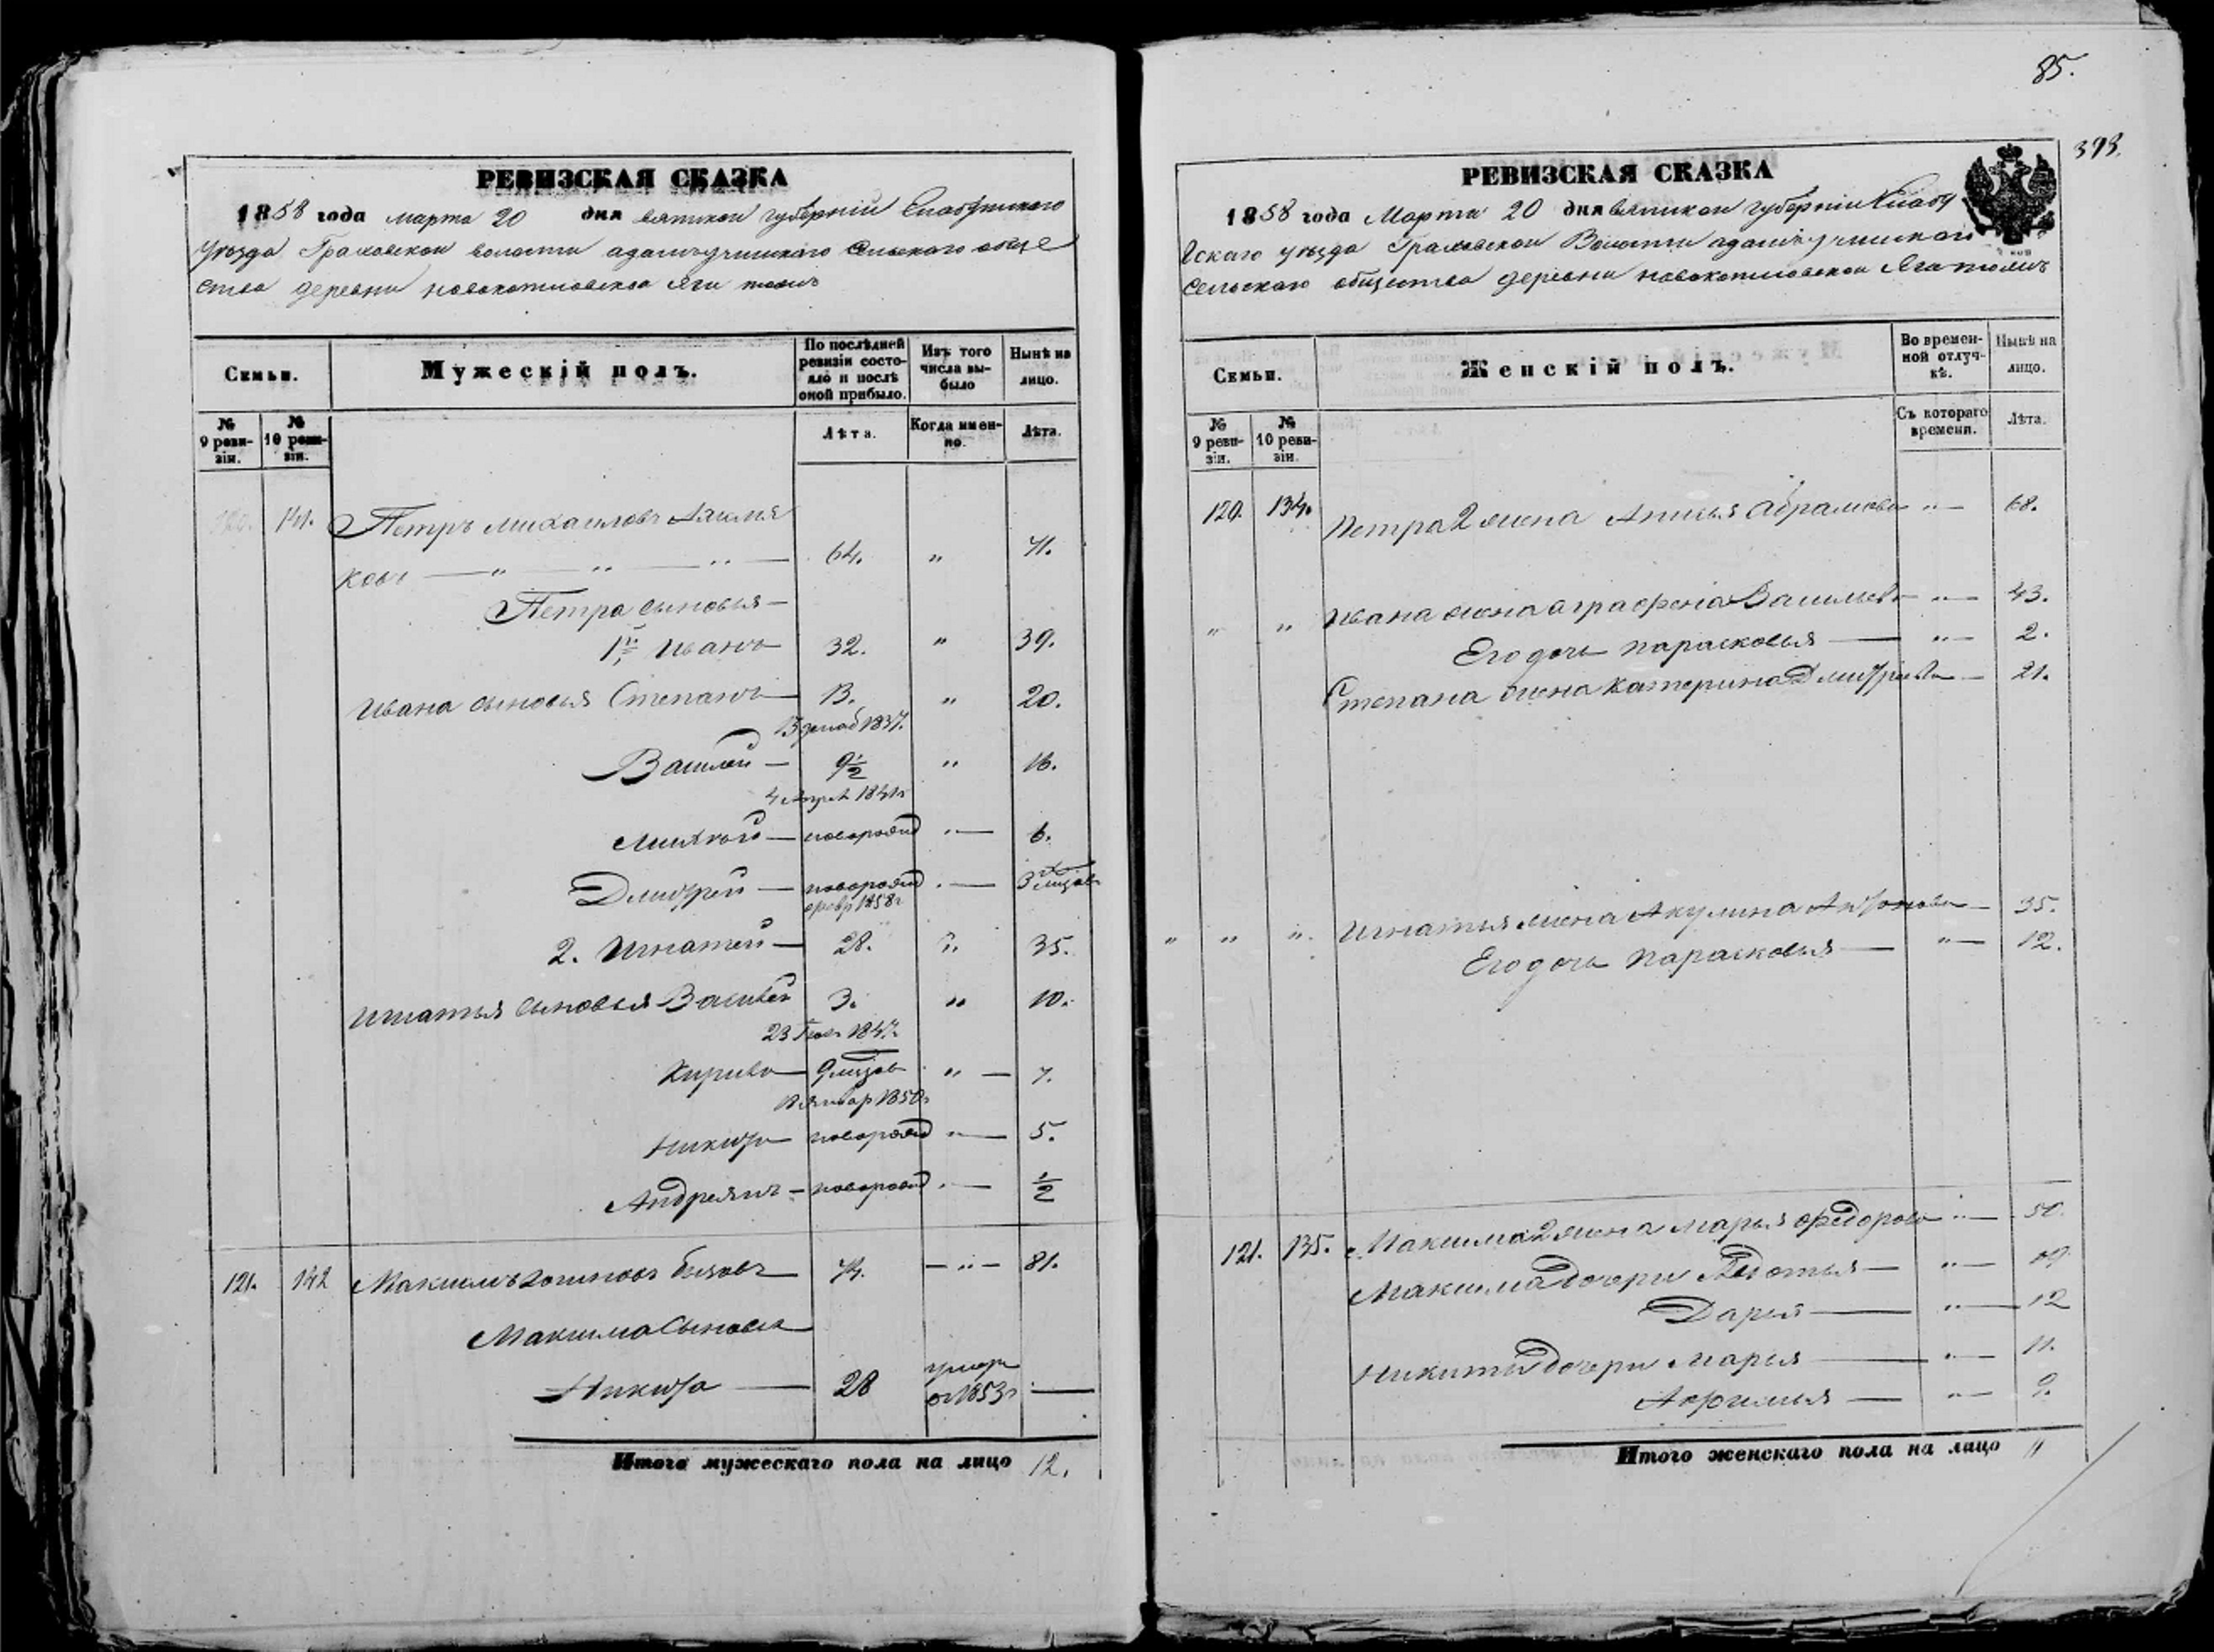 РЕВИЗСКАЯ СКАЗКА
1858 года марта 20 дня вятской губерній Елабужского
Уѣзда Граховской волости адамъучинскаго Сельскаго обще
ства деревни новокотиловской Яги
Семьи.
Мужескій полъ.
По послѣдней ревизіи состояло и послѣ оной прибыло.
Изъ того числа выбыло
Нынѣ на лицо.
№ 9 ревизіи.
№ 10 ревизіи.
Лѣта.
Когда именно.
Лѣта.
120. 141. Петръ михаиловъ
64. " 71.
Петра сыновья
1й Иванъ 32. " 39.
Ивана сыновья Степанъ 13. " 20.
Василей 9½ " 16.
Михайло новорожд " 6.
Дмитрей новорожд 3 мѣсяц
февр 1858г
2. Игнатей 28. " 35.
Игнатья сыновья Василей 3. " 10.
Кирило 9 мѣсяц " 7.
Январ 1850г
Никита новорожд " 5.
Андреянъ новорожд " ½
121. 142 Максимъ логиновъ 74. " 81.
Максима Сыновья
Никита 28 умер
въ 1853г
Итого мужескаго пола на лицо 12.
85.
393.
РЕВИЗСКАЯ СКАЗКА
1858 года Марта 20 дня вятской губерніи Елабу
жскаго уѣзда Граховской Волости адамъучинскаго
Сельскаго общества деревни новокотиловской Яга
Семьи.
Женскій полъ.
Во временной отлучкѣ.
Нынѣ на лицо.
№ 9 ревизіи.
№ 10 ревизіи.
Съ котораго времени.
Лѣта.
120. 134. Петра 2 жена Анисья Абрамова " 68.
" " Ивана жена аграфена Васильева " 43.
Его дочь парасковья " 2.
Степана жена Катерина Дмитріева 21.
" " " Игнатья жена Акулина Антонова 35.
Его дочь парасковья " 12.
121. 135. Максима 2 жена марья федорова " 50.
Максима дочери Авдотья " 19
Дарья " 12
Никиты дочери Марья " 11.
Афимья " 9.
Итого женскаго пола на лицо 11